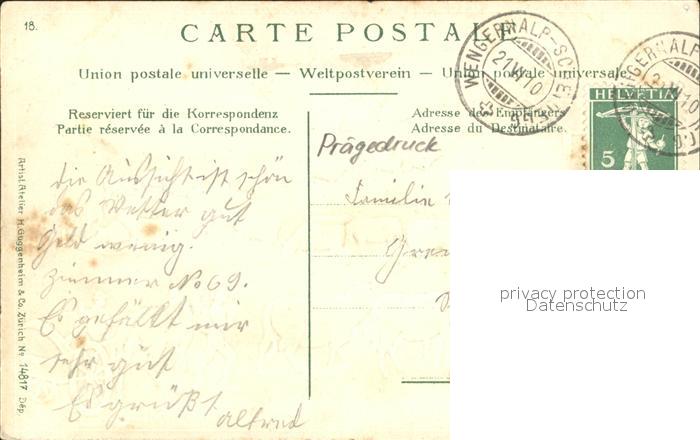 18.
CARTE POSTALE
Union postale universelle — Weltpostverein — Union postale universale
Reserviert für die Korrespondenz
Partie réservée à la Correspondance.
Adresse des Empfängers
Adresse du Destinataire.
WENGERNALP-SCHEID
21.VI.10
HELVETIA
5
Prägedruck
die Aussicht ist schön
das Wetter gut
Geld wenig.
Zimmer No 69.
Es gefällt mir
sehr gut
Es grüßt
Alfred
Familie
privacy protection
Datenschutz
Artist. Atelier H. Guggenheim & Co. Zürich No. 14817 Dép.